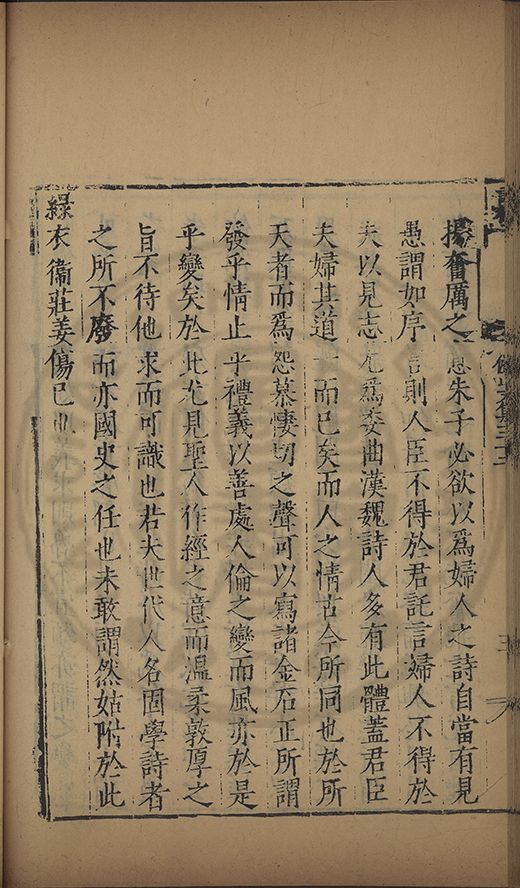 揚奮厲之意朱子必欲以爲婦人之詩自當有見
愚謂如序言則人臣不得於君託言婦人不得於
夫以見志尤爲委曲漢魏詩人多有此體蓋君臣
夫婦其道一而已矣而人之情古今所同也於所
天者而爲怨慕悽切之聲可以寫諸金石正所謂
發乎情止乎禮義以善處人倫之變而風亦於是
乎變矣於此尤見聖人作經之意而溫柔敦厚之
旨不待他求而可識也若夫世代人名固學詩者
之所不廢而亦國史之任也未敢謂然姑附於此
綠衣衞莊姜傷已也